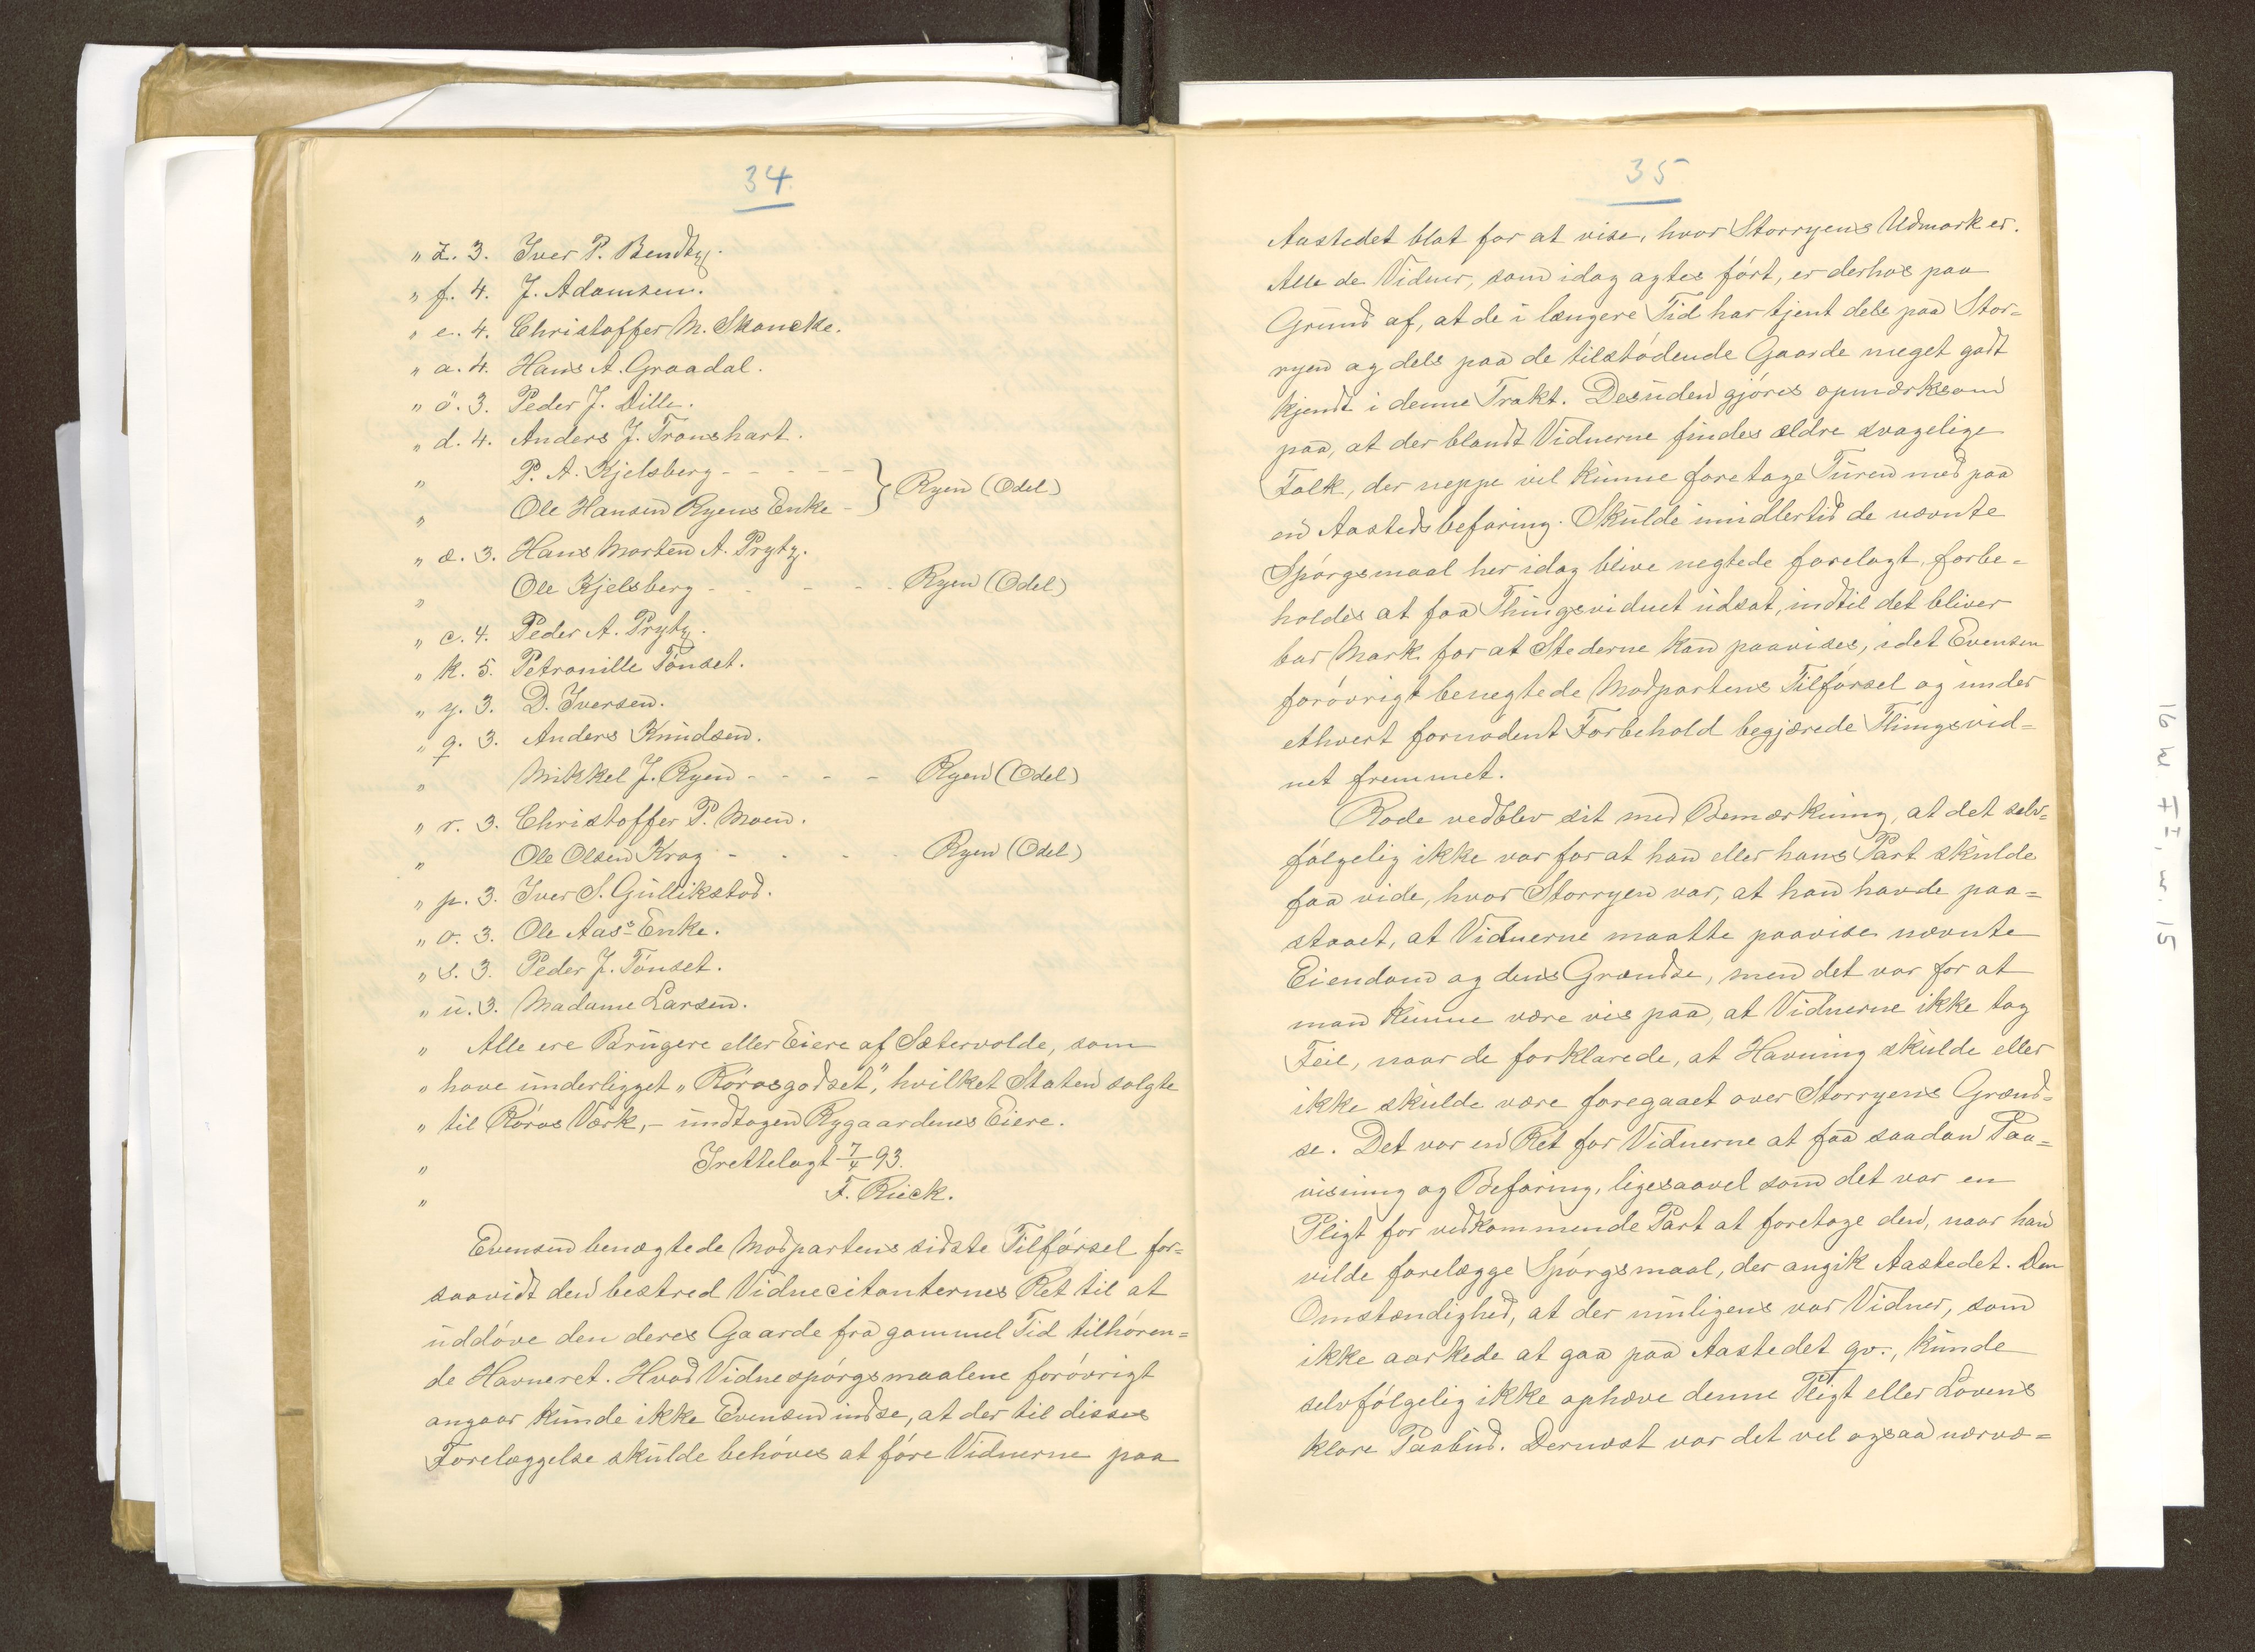 34.
„ z. 3. Iver P. Bendtz.
„ f. 4. J. Adamsen.
„ e. 4. Christoffer M. Skancke.
„ a. 4. Hans A. Graadal.
„ ö. 3. Peder J. Dille.
„ d. 4. Anders J. Tronshart.
„ P. A. Kjelsberg - - - - -
„ Ole Hansen Ryens Enke - } Ryen (Odel)
„ æ. 3. Hans Morten A. Prytz.
„ Ole Kjelsberg - - - - - Ryen (Odel)
„ c. 4. Peder A. Prytz.
„ k. 5. Petronille Tönset.
„ y. 3. D. Iversen.
„ q. 3. Anders Knudsen.
„ Mikkel J. Ryen - - - - Ryen (Odel)
„ r. 3. Christoffer P. Moen.
„ Ole Olsen Krag - - - - Ryen (Odel)
„ p. 3. Iver S. Gullikstad.
„ o. 3. Ole Aas's Enke.
„ s. 3. Peder J. Tönset.
„ u. 3. Madame Larsen.
„ Alle ere Brugere eller Eiere af Sætervolde, som
„ have underligget „Rörosgodset", hvilket Staten solgte
„ til Röros Værk, - undtagen Rygaardenes Eiere.
„ Irettelagt 7/4 93.
„ F. Rieck.
Evensen benægtede Modpartens sidste Tilförsel for=
saavidt den bestred Vidnecitanternes Ret til at
uddöve den deres Gaarde fra gammel Tid tilhören=
de Havneret. Hvad Vidnespörgsmaalene forövrigt
angaar kunde ikke Evensen indse, at der til disses
Forelæggelse skulde behöves at före Vidnerne paa
35
Aastedet blot for at vise, hvor Storryens Udmark er.
Alle de Vidner, som idag agtes fört, er derhos paa
Grund af, at de i længere Tid har tjent dels paa Stor=
ryen og dels paa de tilstödende Gaarde meget godt
kjendt i denne Trakt. Desuden gjöres opmærksom
paa, at der blandt Vidnerne findes ældre svagelige
Folk, der neppe vil kunne foretage Turen med paa
en Aastedsbefaring. Skulde imidlertid de nævnte
Spörgsmaal her idag blive negtede forelagt, forbe=
holdes at faa Thingsvidnet udsat, indtil det bliver
bar Mark for at Stederne kan paavises, idet Evensen
forövrigt benegtede Modpartens Tilförsel og under
ethvert fornödent Forbehold begjærede Thingsvid=
net fremmet.
Rode vedblev sit med Bemærkning, at det selv=
fölgelig ikke var for at han eller hans Part skulde
faa vide, hvor Storryen var, at han havde paa=
staaet, at Vidnerne maatte paavise nævnte
Eiendom og dens Grændse, men det var for at
man kunne være vis paa, at Vidnerne ikke tog
Feil, naar de forklarede, at Havning skulde eller
ikke skulde være foregaaet over Storryens Grænd=
se. Det var en Ret for Vidnerne at faa saadan Paa=
visning og Befaring, ligesaavel som det var en
Pligt for vedkommende Part at foretage den, naar han
vilde forelægge Spörgsmaal, der angik Aastedet. Den
Omstændighed, at der muligens var Vidner, som
ikke aarkede at gaa paa Aastedet gv., kunde
selvfölgelig ikke ophæve denne Pligt eller Lovens
klare Paabud. Dernæst var det vel ogsaa nærvæ=